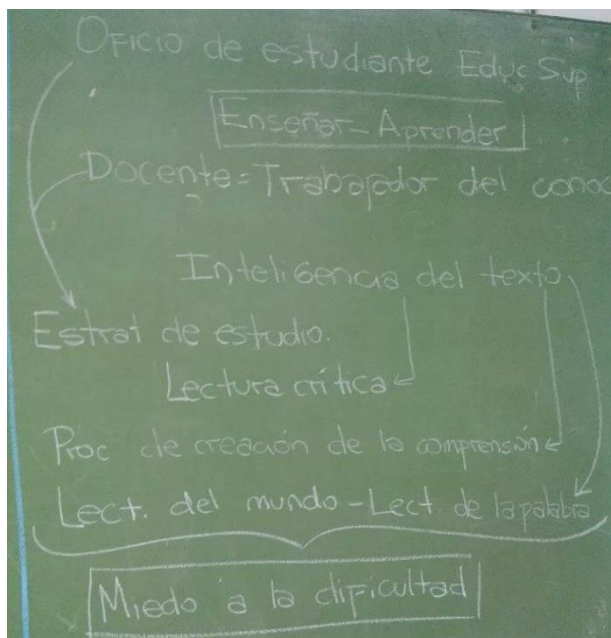 Oficio de estudiante Educ Sup
Enseñar - Aprender
Docente = Trabajador del conoc
Inteligencia del texto
Estrat de estudio.
Lectura crítica
Proc de creación de la comprensión
Lect. del mundo - Lect. de la palabra
Miedo a la dificultad